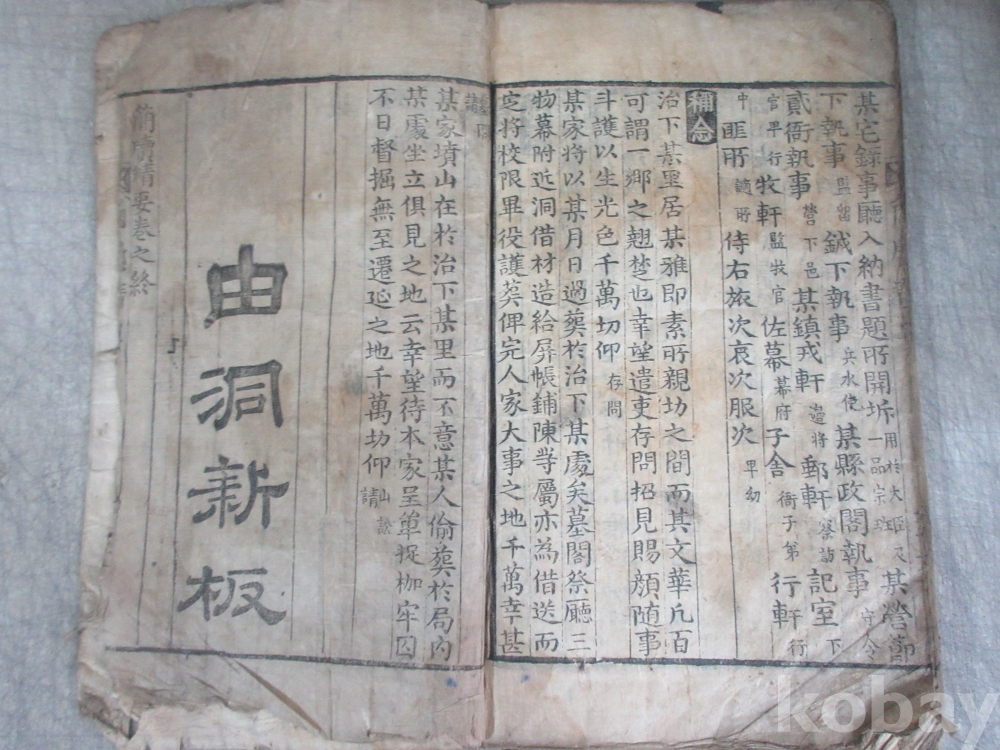 某宅錄事廳入納書題所開坼用於大臣及一品宗班某營節
下執事監留鉞下執事兵水使某縣政閣執事守令
貳衙執事營下邑某鎮戎軒邊將郵軒察訪記室下
官平行牧軒監牧官佐幕幕府子舍衙子弟行軒行
中匪所謫所侍右旅次哀次服次卑幼
稱念
治下某里居某雅即素所親坊之間而其文華凡百
可謂一鄉之翹楚也幸望遣吏存問招見賜顏隨事
斗護以生光色千萬切仰存問
某家將以某月日過葬於治下某處矣墓閣祭廳三
物幕附近洞借材造給屏帳鋪陳等屬亦為借送而
定將校限畢役護葬俾完人家大事之地千萬幸甚
護葬請
某家墳山在於治下某里而不意某人偷葬於局內
某處坐立俱見之地云幸望待本家呈單捉枷牢囚
不日督掘無至遷延之地千萬切仰山訟請
簡牘精要卷之終
由洞新板
kobay